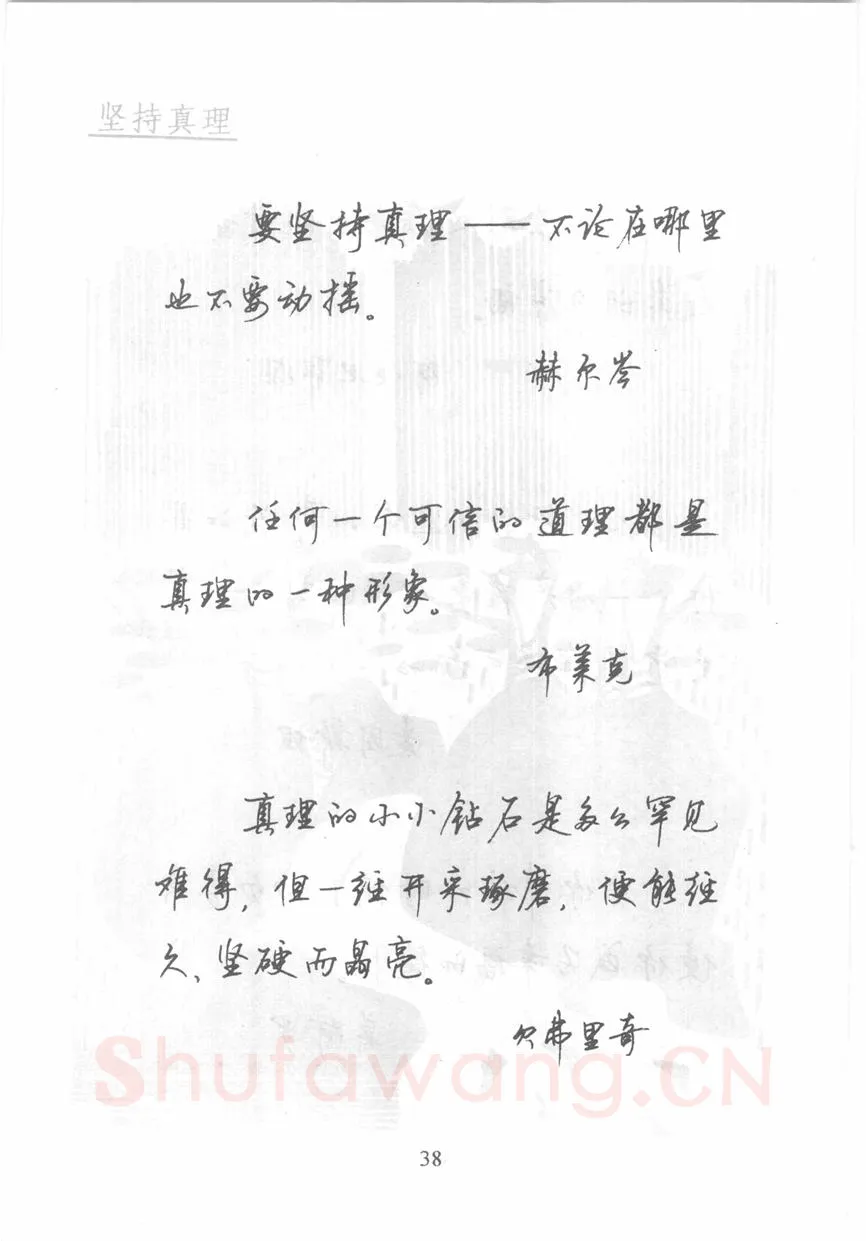 坚持真理
要坚持真理——不论在哪里
也不要动摇。
赫尔岑
任何一个可信的道理都是
真理的一种形象。
布莱克
真理的小小钻石是多么罕见
难得，但一经开采琢磨，便能经
久、坚硬而晶亮。
贝弗里奇
Shufawang.CN
38